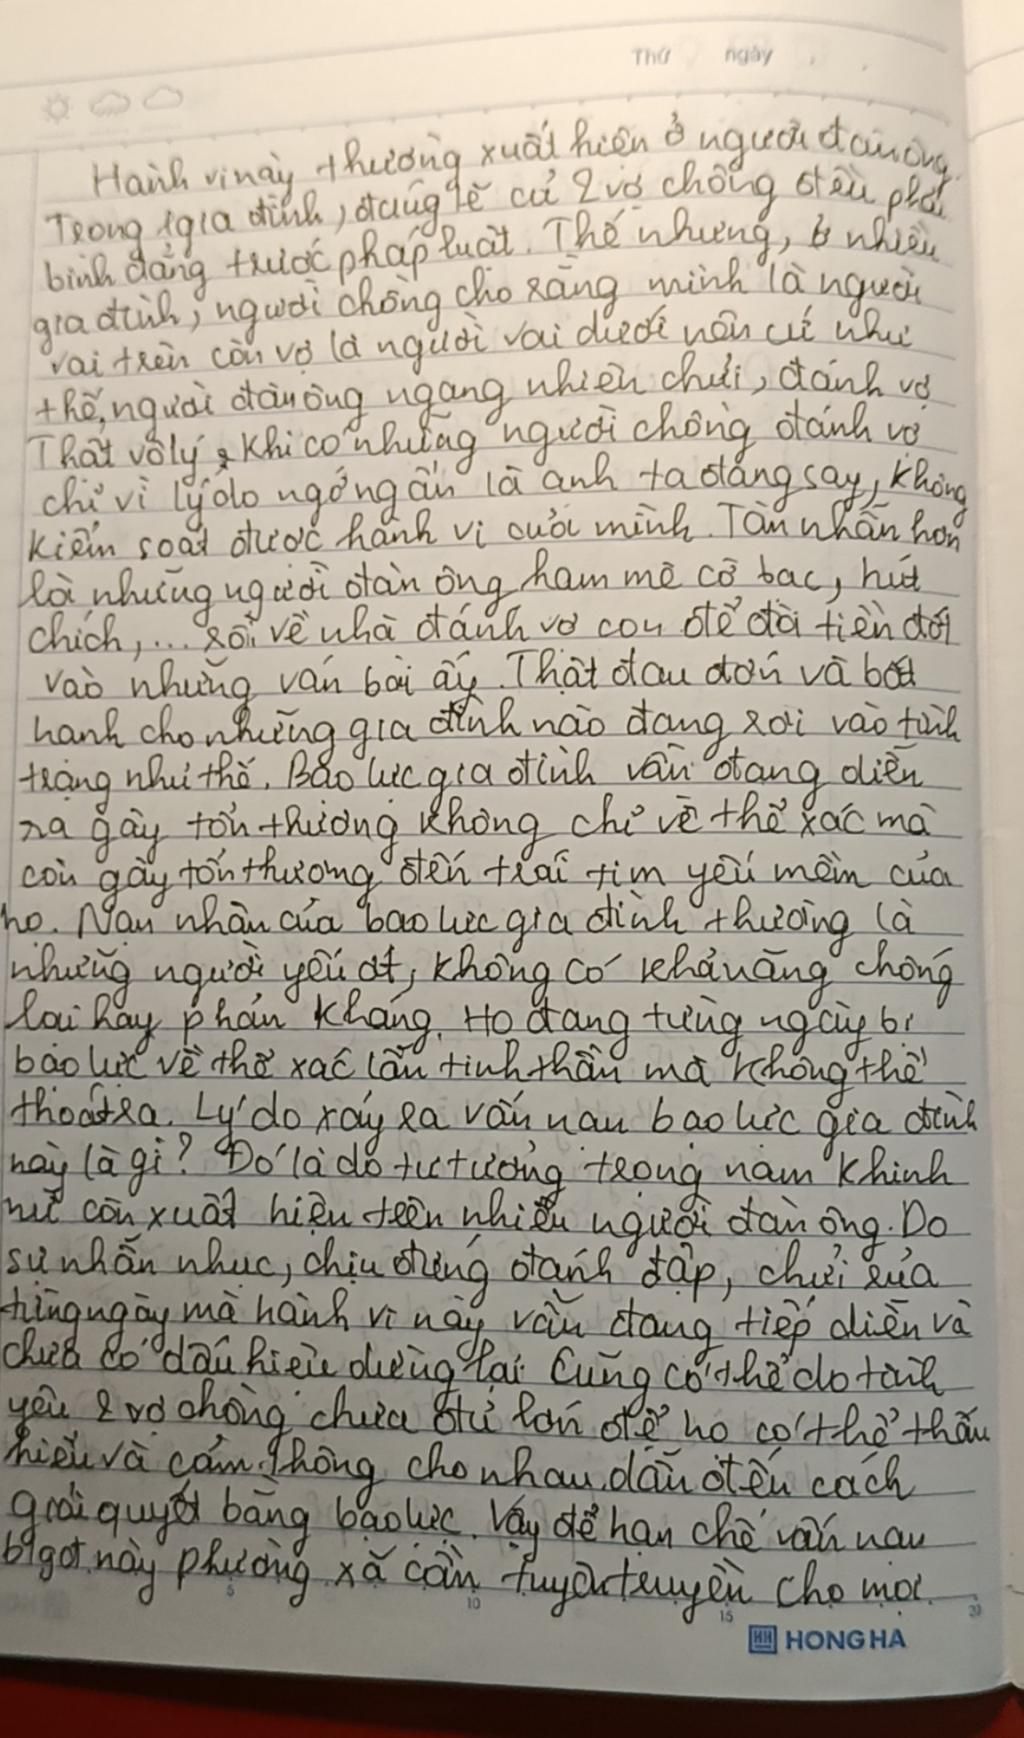 Thứ ngày
Hành vi này thường xuất hiện ở người đàn ông.
Trong 1 gia đình, đáng lẽ cả 2 vợ chồng đều phải
bình đẳng trước pháp luật. Thế nhưng, ở nhiều
gia đình, người chồng cho rằng mình là người
vai trên còn vợ là người vai dưới nên cứ như
thế, người đàn ông ngang nhiên chửi, đánh vợ
Thật vô lý, khi có những người chồng đánh vợ
chỉ vì lý do ngớ ngẩn là anh ta đang say, không
kiểm soát được hành vi của mình. Tàn nhẫn hơn
là những người đàn ông ham mê cờ bạc, hút
chích,... rồi về nhà đánh vợ con để đòi tiền đốt
vào những ván bài ấy. Thật đau đớn và bất
hạnh cho những gia đình nào đang rơi vào tình
trạng như thế. Bạo lực gia đình vẫn đang diễn
ra gây tổn thương không chỉ về thể xác mà
còn gây tổn thương đến trái tim yếu mềm của
họ. Nạn nhân của bạo lực gia đình thường là
những người yếu ớt, không có khả năng chống
lại hay phản kháng. Họ đang từng ngày bị
bạo lực về thể xác lẫn tinh thần mà không thể
thoát ra. Lý do xảy ra vấn nạn bạo lực gia đình
này là gì? Đó là do tư tưởng trọng nam khinh
nữ còn xuất hiện trên nhiều người đàn ông. Do
sự nhẫn nhục, chịu đựng đánh đập, chửi rủa
từng ngày mà hành vi này vẫn đang tiếp diễn và
chưa có dấu hiệu dừng lại. Cũng có thể do tình
yêu 2 vợ chồng chưa đủ lớn để họ có thể thấu
hiểu và cảm thông cho nhau, dẫn đến cách
giải quyết bằng bạo lực. Vậy để hạn chế vấn nạn
này phường xã cần tuyên truyền cho mọi
5 10 15 20
HH HONG HA